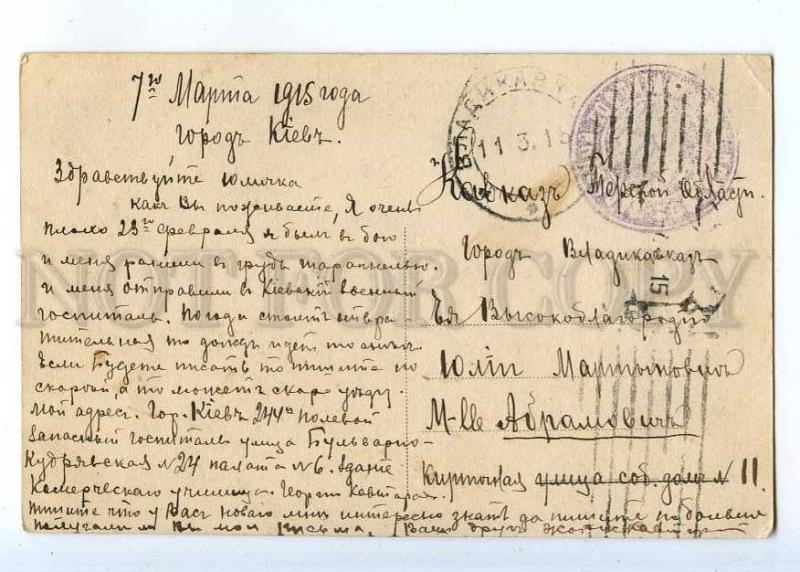 7го Марта 1915 года
городъ Кіевъ.
Здравствуйте Юличка
какъ Вы поживаете, Я очень
плохо 23го февраля я былъ въ бою
и меня ранили въ грудь шрапнелью.
и меня отправили въ Кіевскій военный
госпиталь. Погода стоитъ отвра-
тительная то дождь идетъ то
Если будете писать то пишите по
скорей, а то можетъ скоро уѣду.
Мой адресъ. Гор. Кіевъ 244й полевой
запасный госпиталь улица Бульварно-
Кудрявская №24 палата №6. здание
Комерческаго училища. Георгій
Пишите что у Васъ новаго мнѣ интересно знать да пишите по больше
получали ли вы мои письма. Вашъ другъ
ВЛАДИКАВКАЗ
11 3.15
Кавказъ Терской Области.
Городъ Владикавказъ
Ея Высокоблагородію
Юліи Мартыновнѣ
M-lle Абрамовичъ
Кирпичная улица соб. домъ № 11.
15
NOT FOR COPY